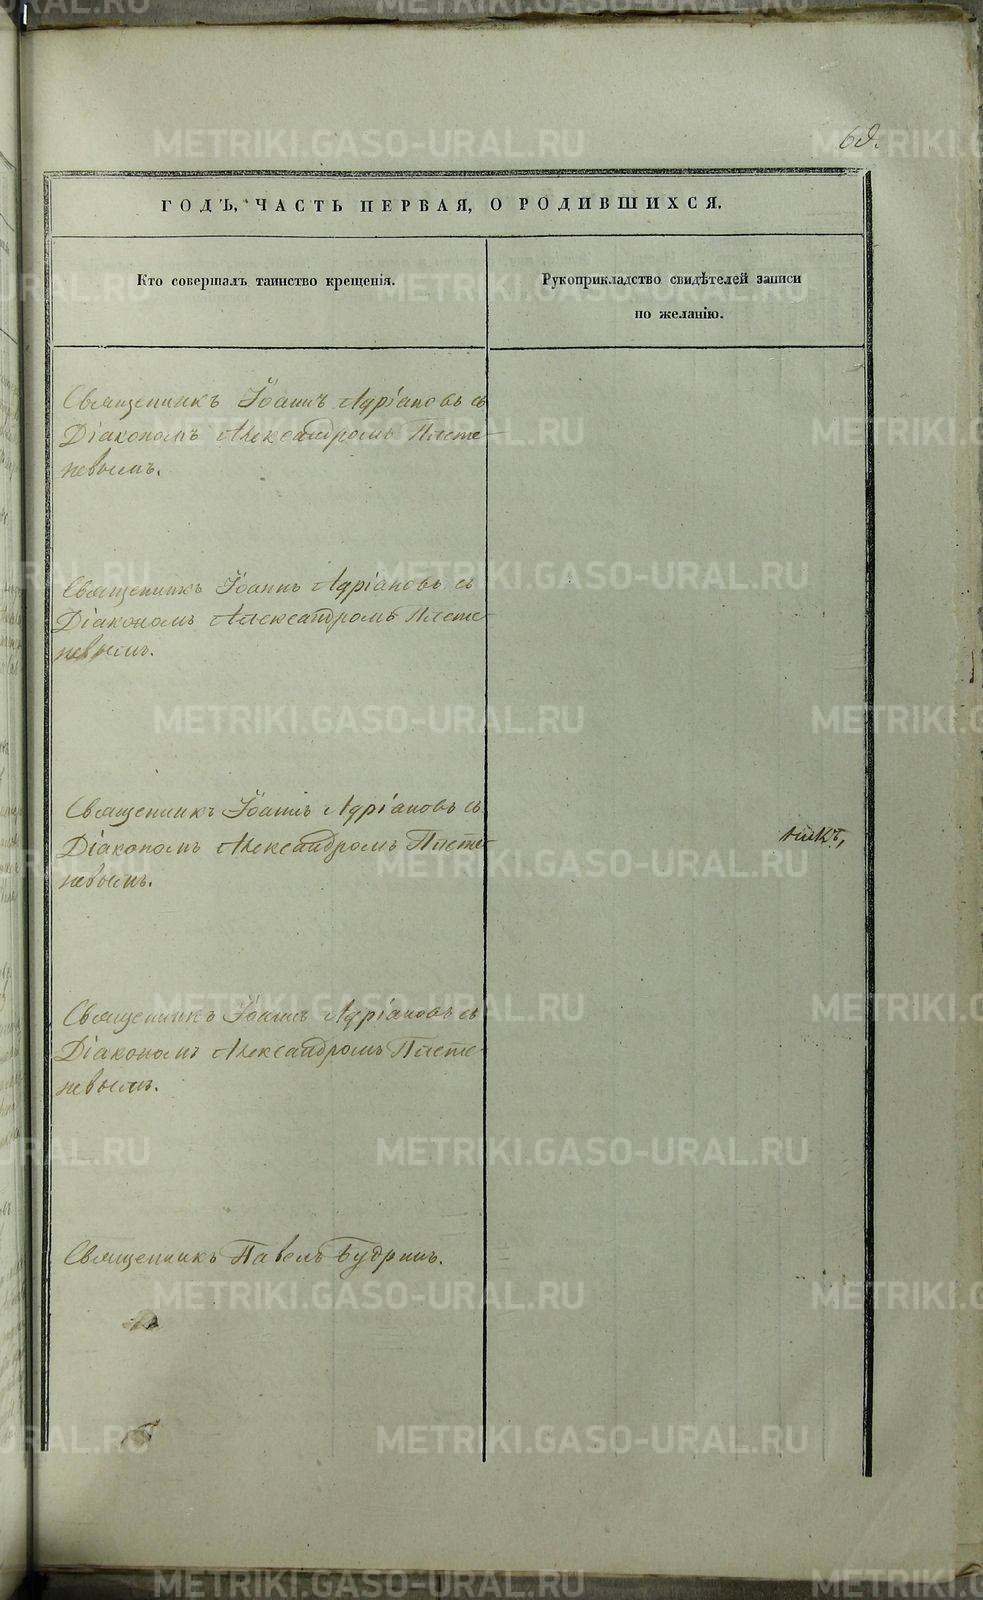 METRIKI.GASO-URAL.RU
69.
ГОДЪ, ЧАСТЬ ПЕРВАЯ, О РОДИВШИХСЯ.
Кто совершалъ таинство крещенія.
Рукоприкладство свидѣтелей записи
по желанію.
Священникъ Іоаннъ Адріановъ съ
Діакономъ Александромъ Плете-
невымъ.
Священникъ Іоаннъ Адріановъ съ
Діакономъ Александромъ Плете-
невымъ.
Священникъ Іоаннъ Адріановъ съ
Діакономъ Александромъ Плете-
невымъ.
никъ,
Священникъ Іоаннъ Адріановъ съ
Діакономъ Александромъ Плете-
невымъ.
Священникъ Павелъ Будринъ.